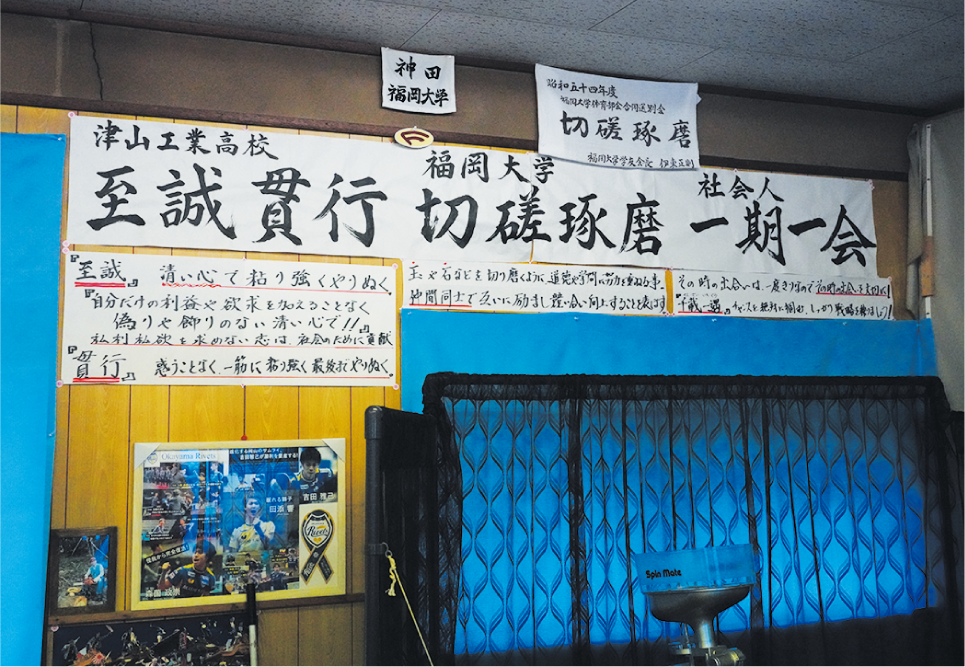 神田
福岡大学
昭和五十四年度
福岡大学体育部会合同送別会
切磋琢磨
福岡大学学友会長
津山工業高校
至誠貫行
福岡大学
切磋琢磨
社会人
一期一会
『至誠』 清い心で粘り強くやりぬく
『自分だけの利益や欲求を加えることなく
偽りや飾りのない清い心で!!』
私利私欲を求めない志は、社会のために貢献
『貫行』 惑うことなく、一筋に粘り強く最後までやりぬく
玉や石などを切り磨くように、道徳や学問に努力を重ねる事。
仲間同士で互いに励まし競い合い向上することを表はす
その時の出会いは、一度きりなのでその時の出会いを大切に!
チャンスを絶対に掴む、しっかり戦略を練ましょう!
Okayama Rivets
吉田雅己
田添響
Rivets
Spin Mate